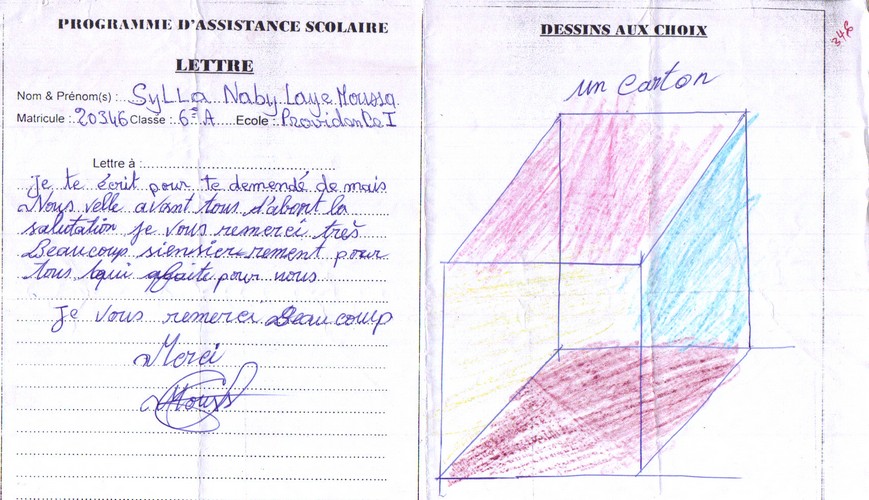 PROGRAMME D'ASSISTANCE SCOLAIRE
LETTRE
Nom & Prénom(s) : SyLLa Naby Laye Moussa
Matricule : 20346 Classe : 6e A Ecole : Providence I
Lettre à :
Je te écrit pour te demendé de mais
Nous velle avant tous d'abort la
salutation je vous remerci très
Beaucoup siensier rement pour
tous qui afaite pour nous
Je vous remerci Beaucoup
Merci
Mouss
DESSINS AUX CHOIX
un carton